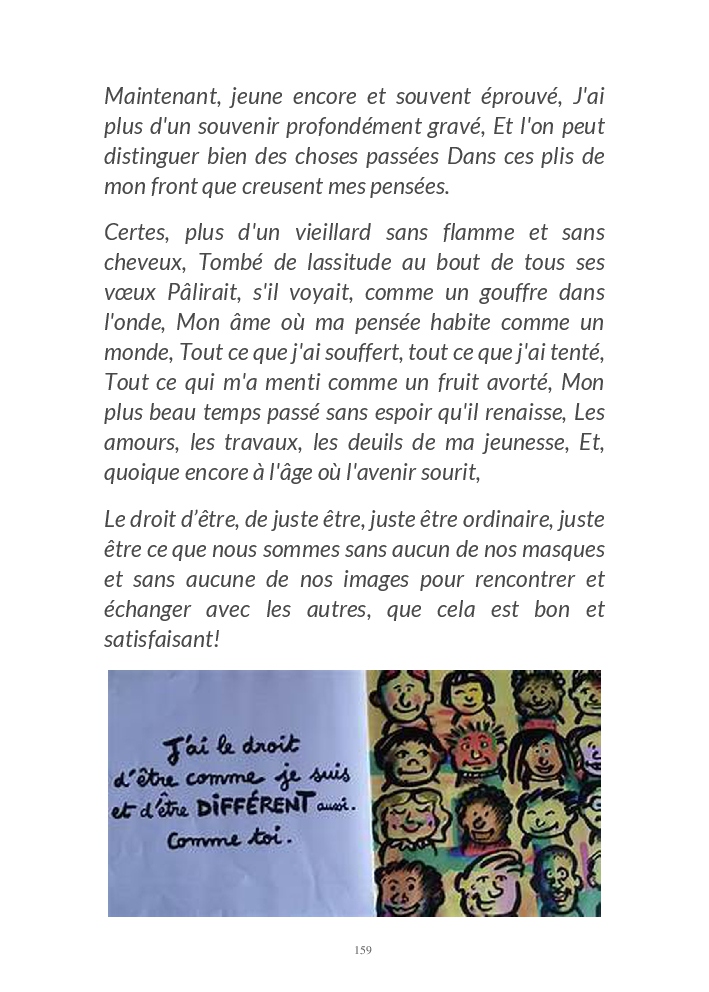 Maintenant, jeune encore et souvent éprouvé, J'ai
plus d'un souvenir profondément gravé, Et l'on peut
distinguer bien des choses passées Dans ces plis de
mon front que creusent mes pensées.
Certes, plus d'un vieillard sans flamme et sans
cheveux, Tombé de lassitude au bout de tous ses
vœux Pâlirait, s'il voyait, comme un gouffre dans
l'onde, Mon âme où ma pensée habite comme un
monde, Tout ce que j'ai souffert, tout ce que j'ai tenté,
Tout ce qui m'a menti comme un fruit avorté, Mon
plus beau temps passé sans espoir qu'il renaisse, Les
amours, les travaux, les deuils de ma jeunesse, Et,
quoique encore à l'âge où l'avenir sourit,
Le droit d’être, de juste être, juste être ordinaire, juste
être ce que nous sommes sans aucun de nos masques
et sans aucune de nos images pour rencontrer et
échanger avec les autres, que cela est bon et
satisfaisant!
J'ai le droit
d'être comme je suis
et d'être DIFFÉRENT aussi.
Comme toi.
159